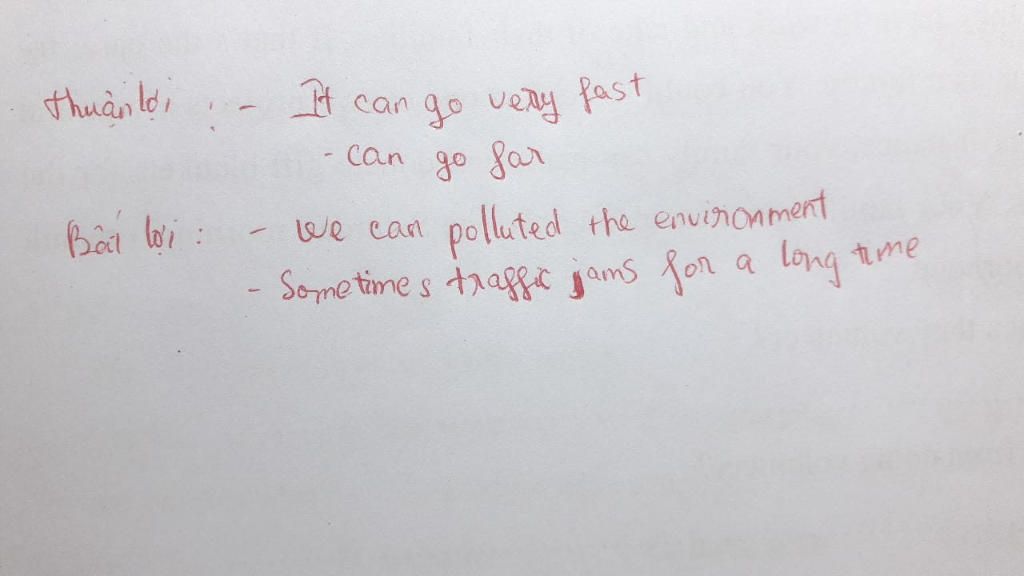 thuận lợi : - It can go very fast
- can go far
Bất lợi : - we can polluted the environment
- Sometimes traffic jams for a long time